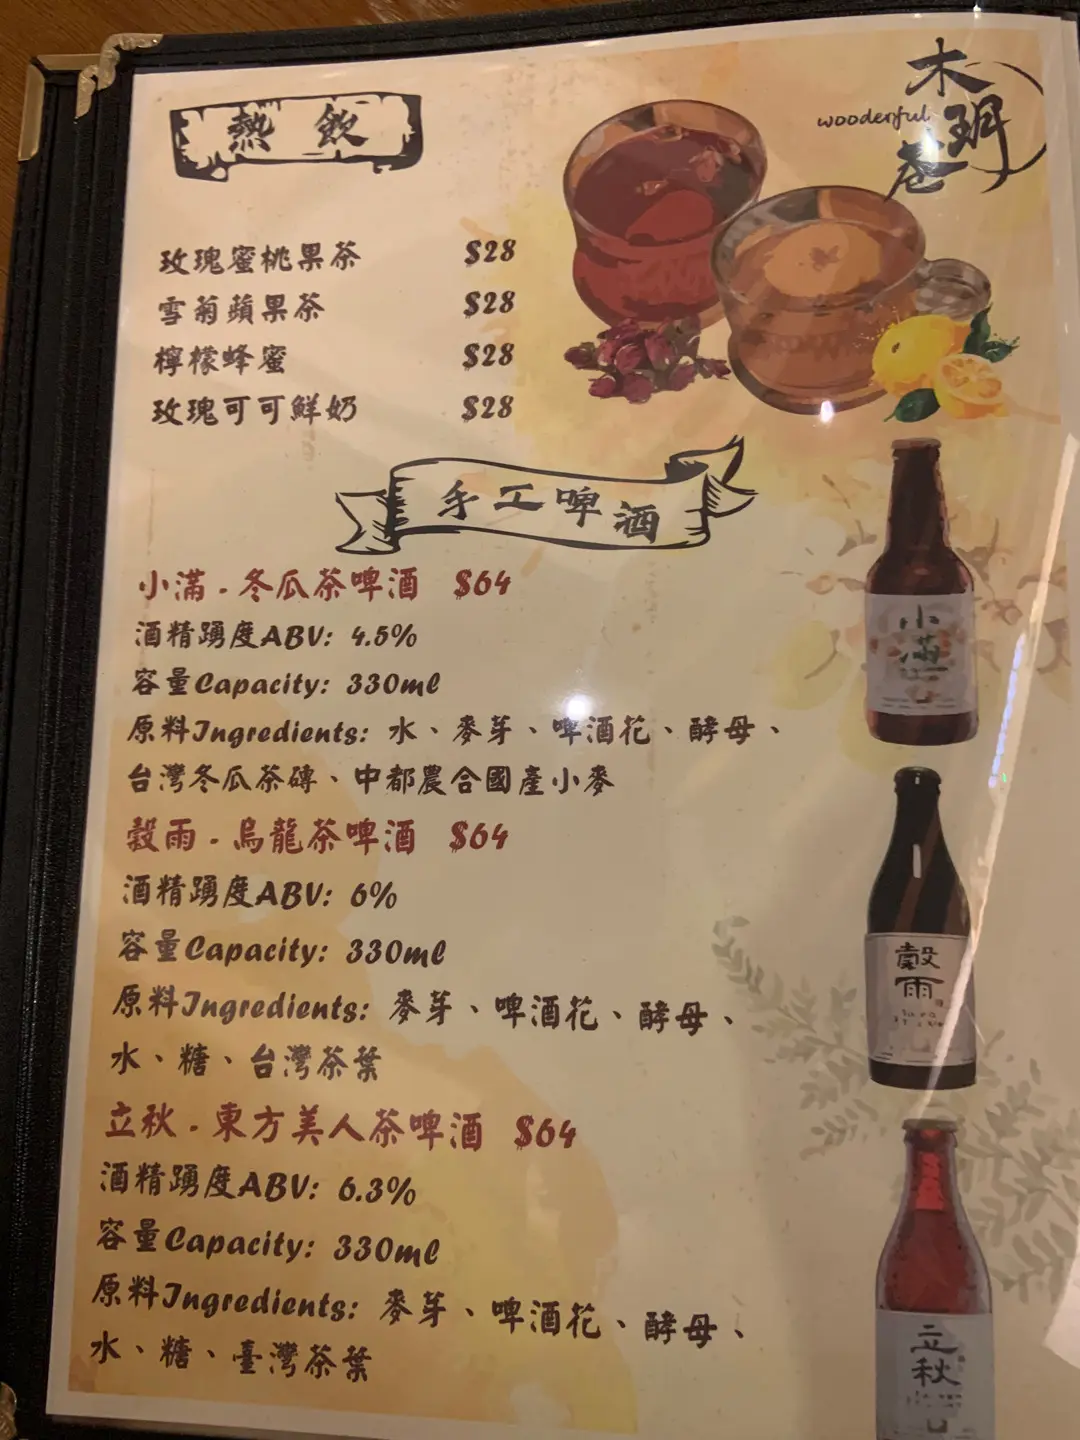 木
wooderful
玥
巷
熱 飲
玫瑰蜜桃果茶 $28
雪菊蘋果茶 $28
檸檬蜂蜜 $28
玫瑰可可鮮奶 $28
手工啤酒
小滿.冬瓜茶啤酒 $64
酒精踴度ABV: 4.5%
容量Capacity: 330ml
原料Ingredients: 水、麥芽、啤酒花、酵母、
台灣冬瓜茶磚、中都農合國產小麥
小
滿
穀雨.烏龍茶啤酒 $64
酒精踴度ABV: 6%
容量Capacity: 330ml
原料Ingredients: 麥芽、啤酒花、酵母、
水、糖、台灣茶葉
穀
雨
立秋.東方美人茶啤酒 $64
酒精踴度ABV: 6.3%
容量Capacity: 330ml
原料Ingredients: 麥芽、啤酒花、酵母、
水、糖、臺灣茶葉
立
秋